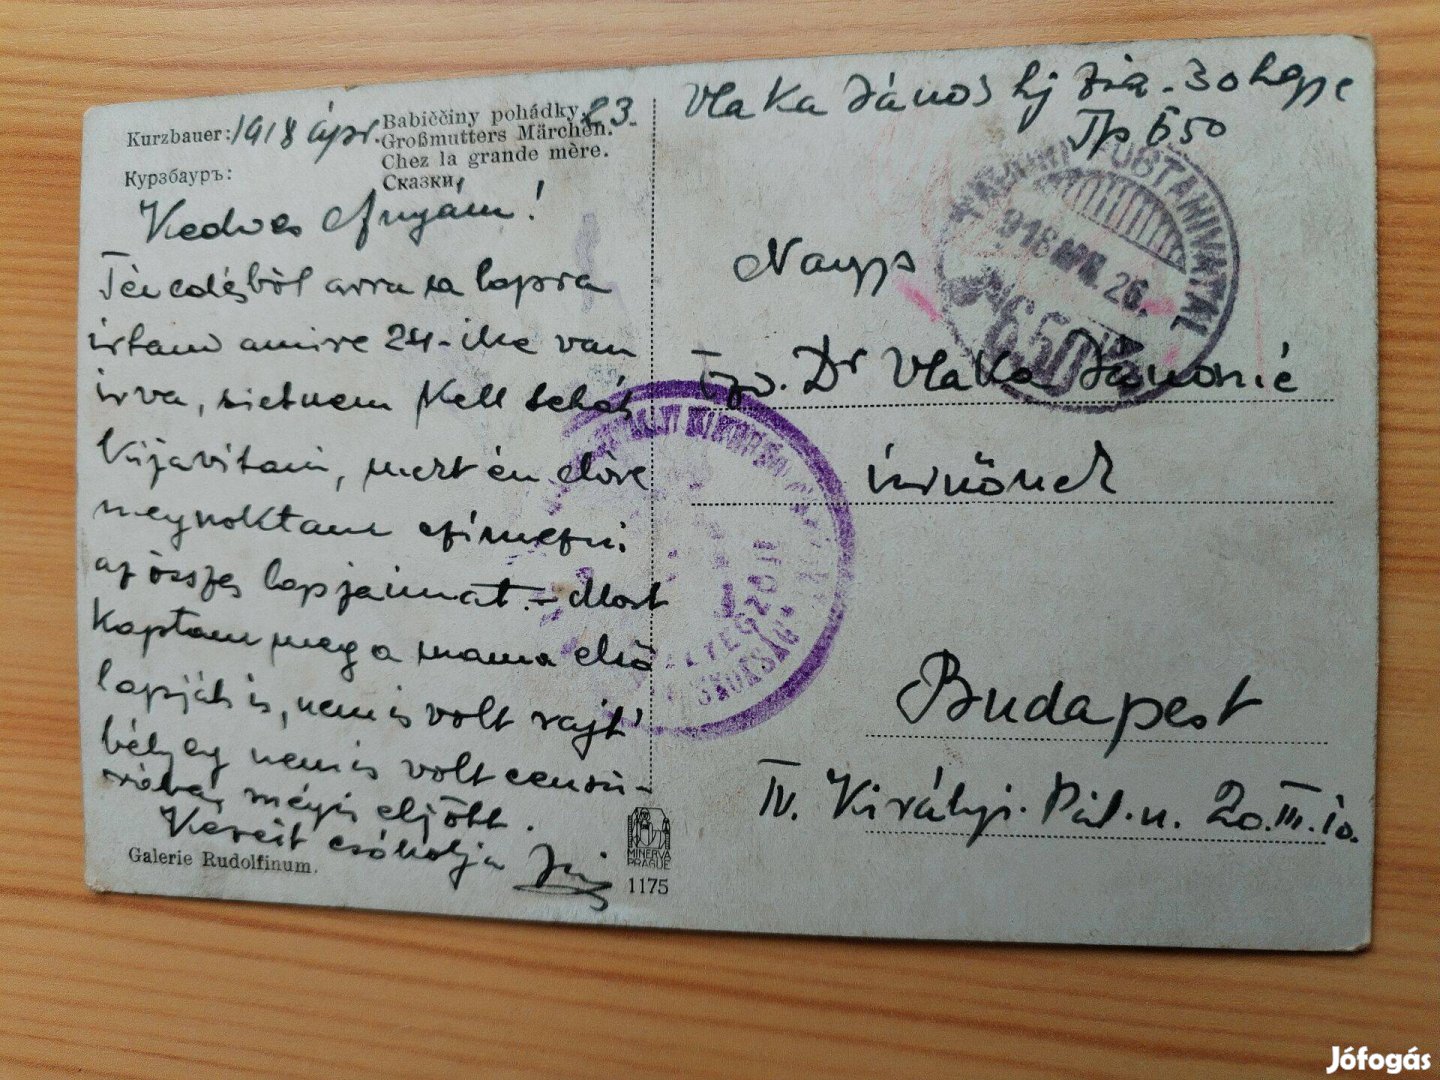 Kurzbauer: 1918 ápr. 23.
Курзбауръ:
Babiččiny pohádky.
Großmutters Märchen.
Chez la grande mère.
Сказки.
Kedves Anyám!
Tévedésből arra a lapra
írtam amire 24-ike van
írva, sietnem kell tehát
kijavítani, mert én előre
megszoktam címezni
az összes lapjaimat. - Most
kaptam meg a mama első
lapját is, nem is volt rajt'
bélyeg nem is volt cenzu-
rázva, mégis eljött.
Kezeit csókolja
Galerie Rudolfinum.
MINERVA
PRAGUE
1175
Vlaka János hj. 30
Tp 650
TÁBORI POSTAHIVATAL
918 ÁPR. 26.
650
Nags
Özv. Dr Vlaka Jánosné
úrnőnek
Budapest
IV. Királyi. Pál. u. 20. III. 10.
Jófogás